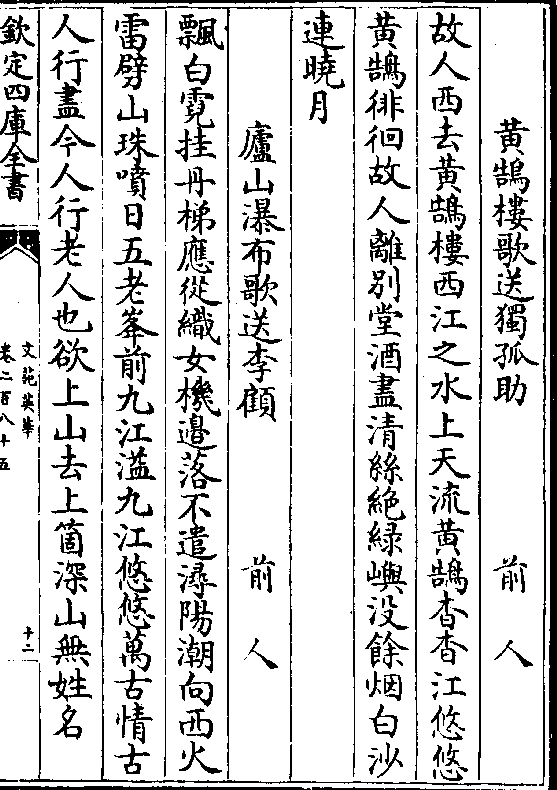 黄鵠樓歌送獨孤助　前人
故人西去黄鵠樓西江之水上天流黄鵠杳杳江悠悠
黄鵠徘徊故人離別堂酒盡清絲絶緑嶼没餘烟白沙
連曉月
廬山瀑布歌送李顧　前人
飄白霓挂丹梯應從織女機邉落不遣潯陽潮向西火
雷劈山珠噴日五老峯前九江溢九江悠悠萬古情古
人行盡今人行老人也欲上山去上箇深山無姓名
欽定四庫全書
文苑英華
卷二百八十五
十二